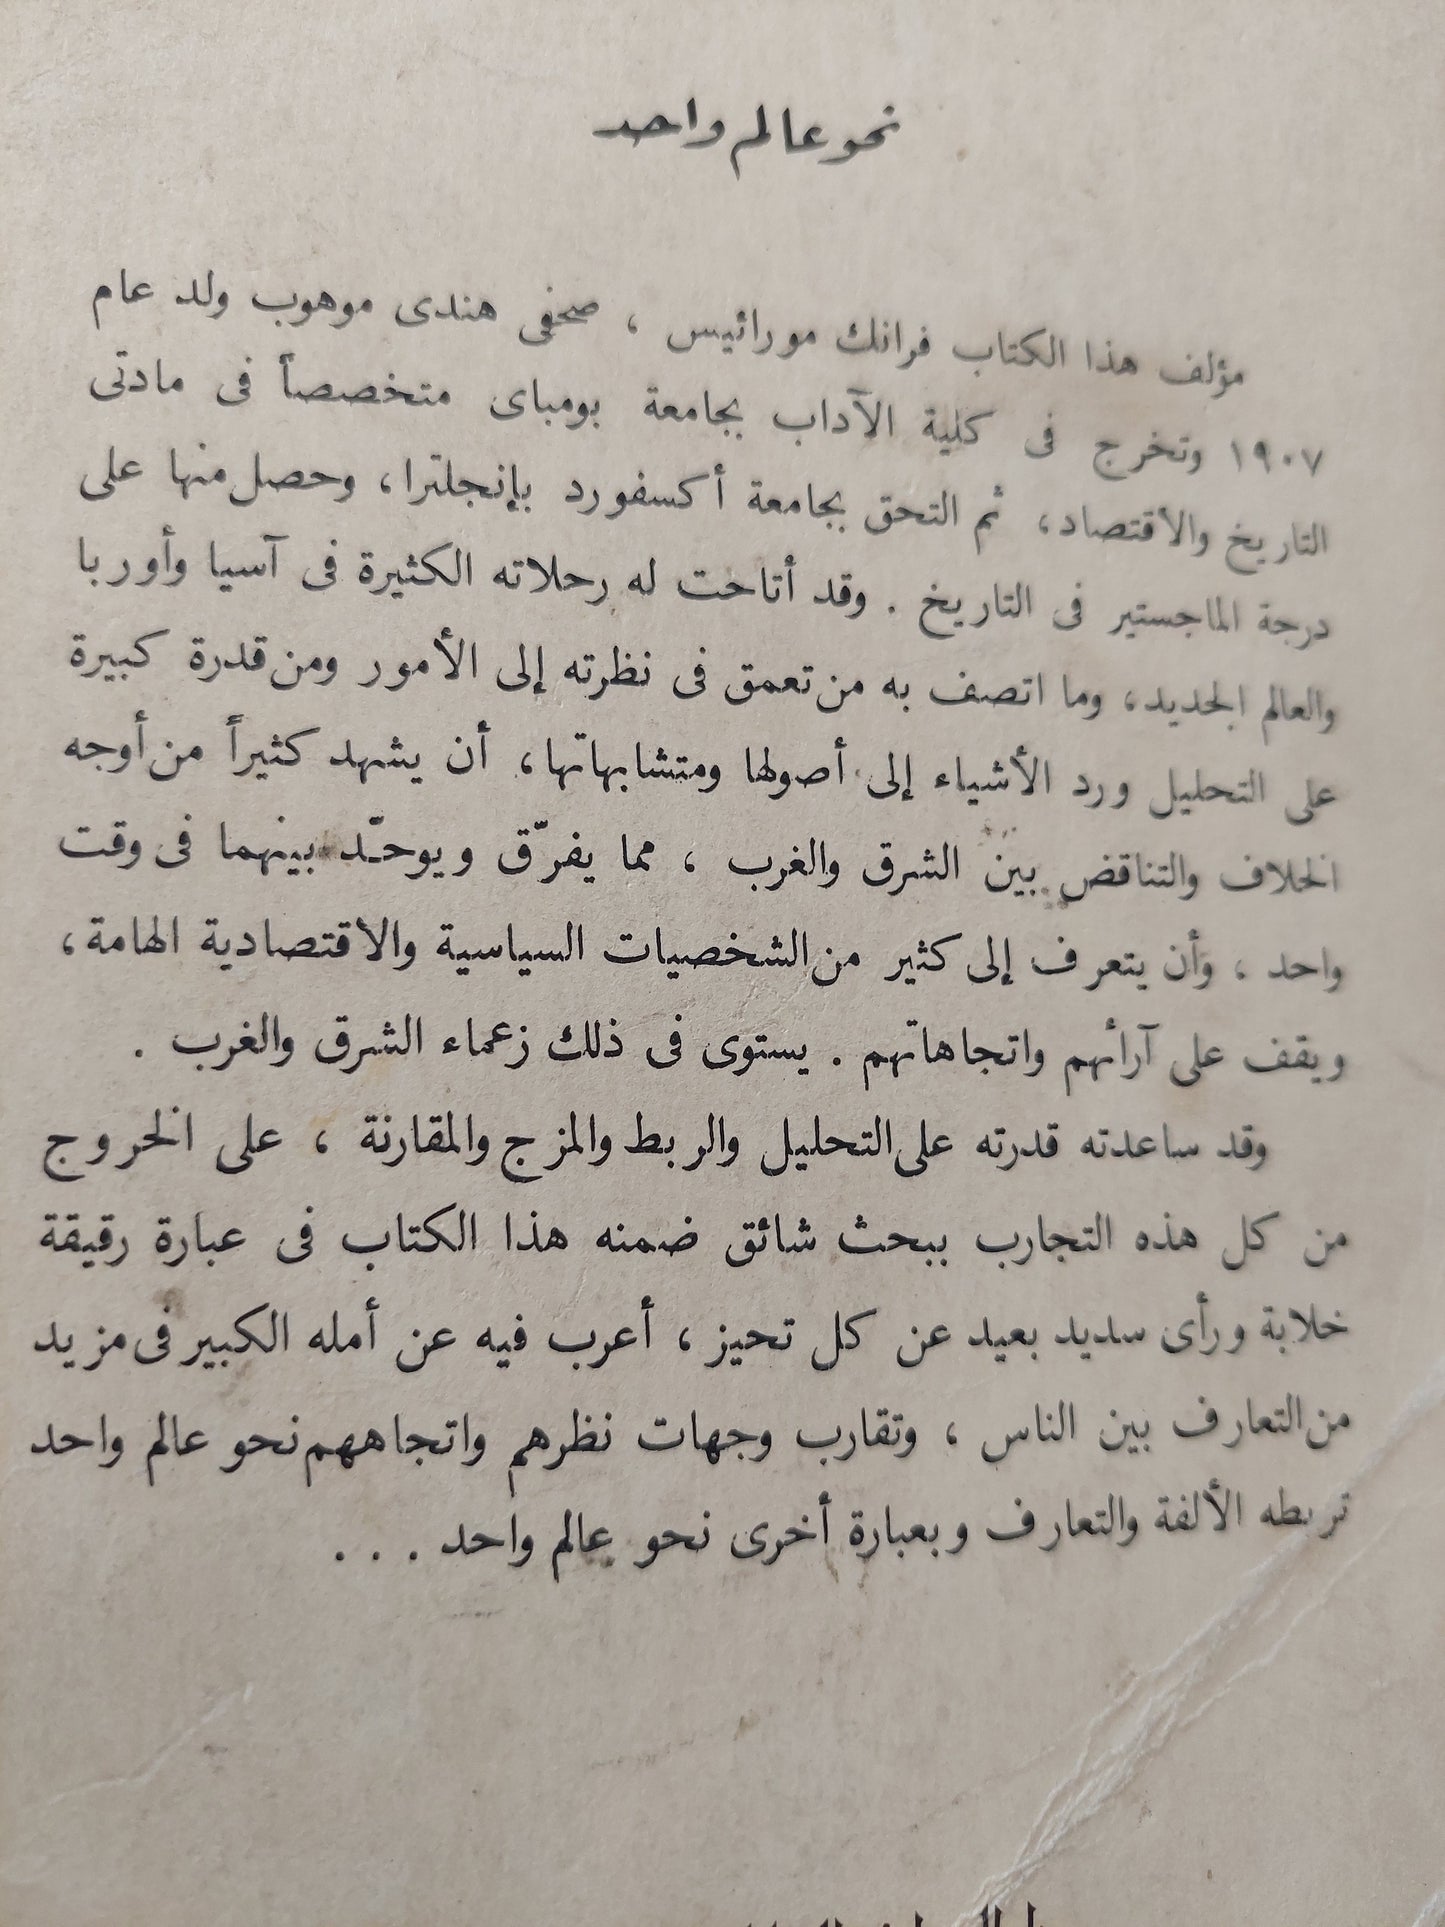 نحو عالم واحد
مؤلف هذا الكتاب فرانك مورائيس ، صحفى هندى موهوب ولد عام
١٩٠٧ وتخرج فى كلية الآداب بجامعة بومباى متخصصاً فى مادتى
التاريخ والاقتصاد، ثم التحق بجامعة أكسفورد بإنجلترا، وحصل منها على
درجة الماجستير فى التاريخ . وقد أتاحت له رحلاته الكثيرة فى آسيا وأوربا
والعالم الجديد، وما اتصف به من تعمق فى نظرته إلى الأمور ومن قدرة كبيرة
على التحليل ورد الأشياء إلى أصولها ومتشابهاتها، أن يشهد كثيراً من أوجه
الخلاف والتناقض بين الشرق والغرب ، مما يفرّق ويوحّد بينهما فى وقت
واحد ، وأن يتعرف إلى كثير من الشخصيات السياسية والاقتصادية الهامة،
ويقف على آرائهم واتجاهاتهم . يستوى فى ذلك زعماء الشرق والغرب .
وقد ساعدته قدرته على التحليل والربط والمزج والمقارنة ، على الخروج
من كل هذه التجارب ببحث شائق ضمنه هذا الكتاب فى عبارة رقيقة
خلابة ورأى سديد بعيد عن كل تحيز ، أعرب فيه عن أمله الكبير فى مزيد
من التعارف بين الناس ، وتقارب وجهات نظرهم واتجاههم نحو عالم واحد
تربطه الألفة والتعارف وبعبارة أخرى نحو عالم واحد . . .